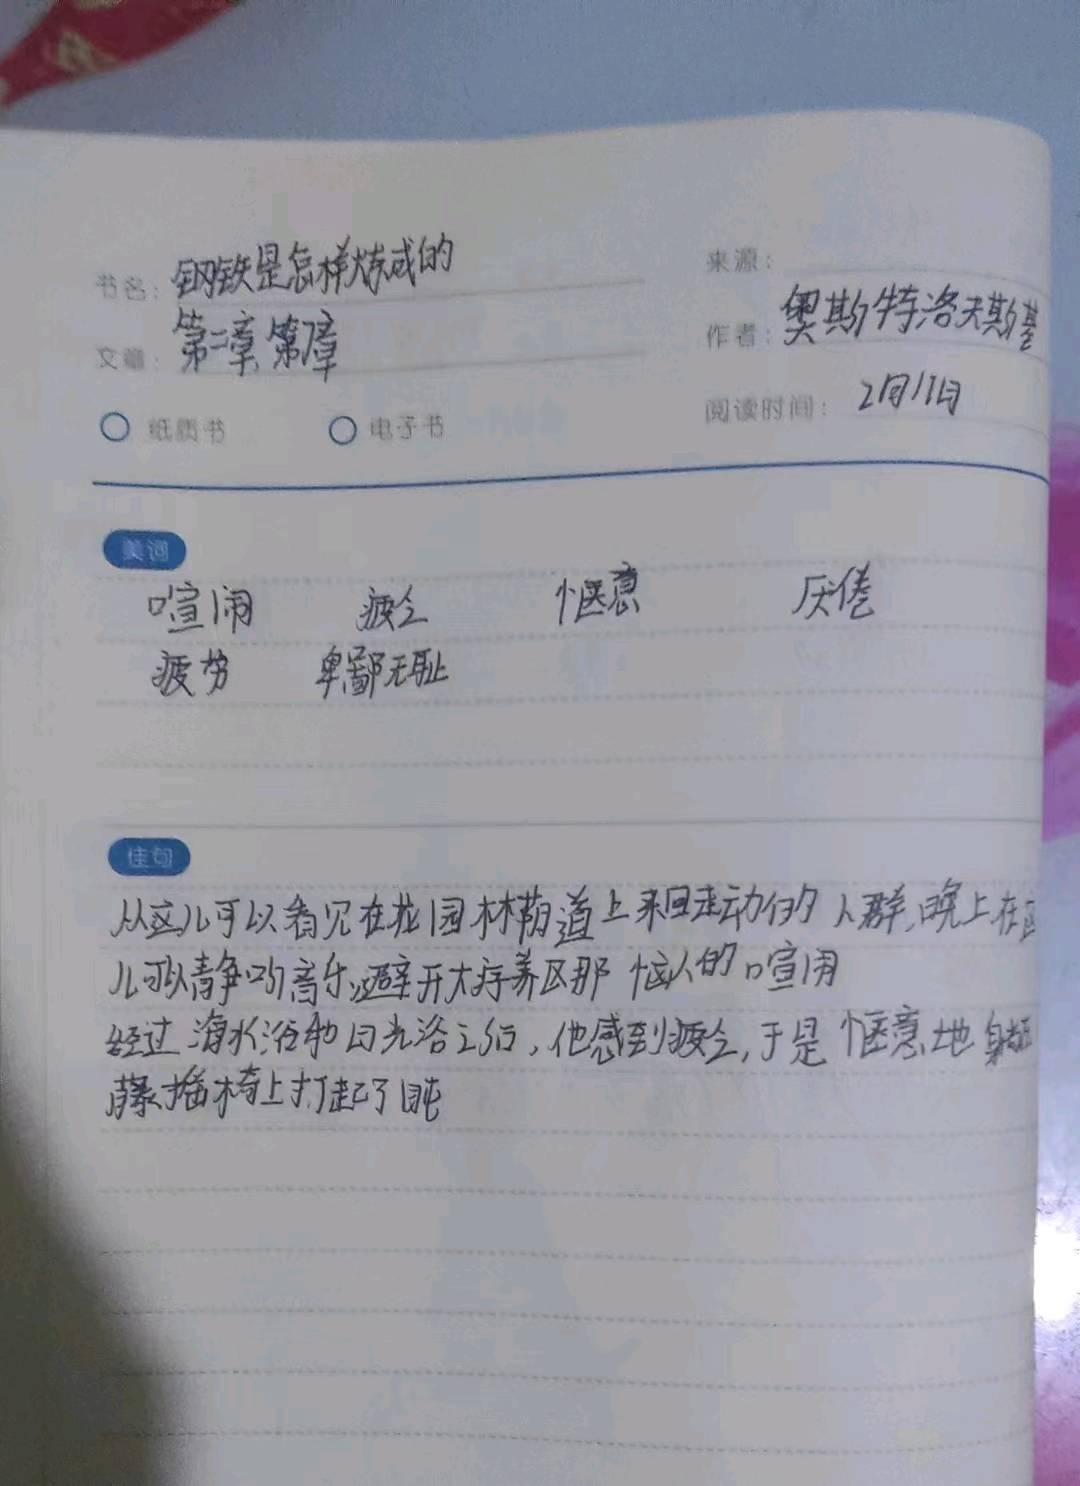 书名: 钢铁是怎样炼成的
来源:
文章: 第二章 第7章
作者: 奥斯特洛夫斯基
纸质书 电子书
阅读时间: 2月11日
美词
喧闹 疲乏 惬意 厌倦
疲劳 卑鄙无耻
佳句
从这儿可以看见在花园林荫道上来回走动的人群,晚上在这
儿可以静听音乐,避开大疗养区那恼人的喧闹
经过海水浴和日光浴之后,他感到疲乏,于是惬意地躺在
藤摇椅上打起了盹